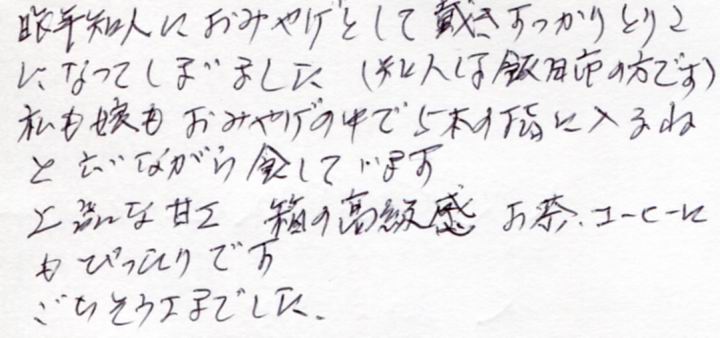 昨年知人におみやげとして戴きすっかりとりこ
になってしまいました（知人は飯田市の方です）
私も娘もおみやげの中で5本の指に入るね
と言いながら食しています
上品な甘さ 箱の高級感 お茶、コーヒーに
もぴったりです
ごちそうさまでした、